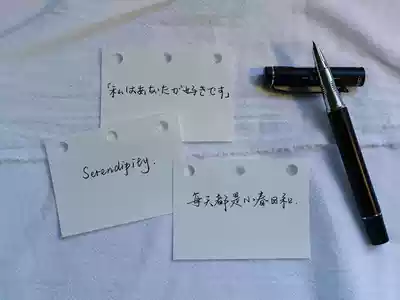 「私はあなたが好きです」
Serendipity.
每天都是小春日和.